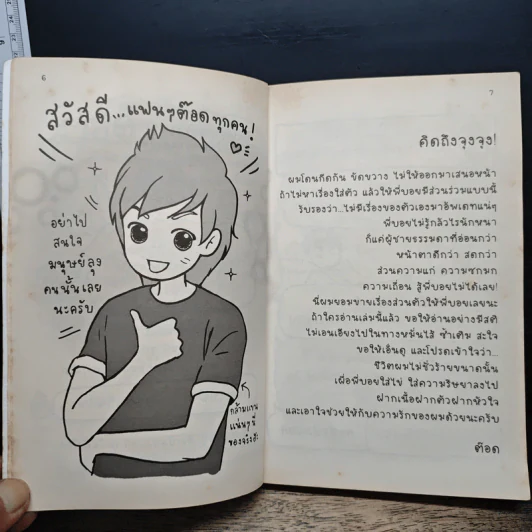 6
สวัสดี...แฟนๆต๊อดทุกคน!
อย่าไป
สนใจ
มนุษย์ลุง
คนนั้นเลย
นะครับ
กล้ามแขน
แน่นๆนี่
ของจริงฮะ
7
คิดถึงจุงจุง!
ผมโดนกีดกัน ขัดขวาง ไม่ให้ออกมาเสนอหน้า
ถ้าไม่หาเรื่องใส่ตัว แล้วให้พี่บอยมีส่วนร่วมแบบนี้
รับรองว่า...ไม่มีเรื่องของตัวเองมาอัพเดทแน่ๆ
พี่บอยไม่รู้กลัวไรนักหนา
ก็แค่ผู้ชายธรรมดาที่อ่อนกว่า
หน้าตาดีกว่า สดกว่า
ส่วนความแก่ ความซกมก
ความเถื่อน สู้พี่บอยไม่ได้เลย!
นี่ผมยอมขายเรื่องส่วนตัวให้พี่บอยเลยนะ
ถ้าใครอ่านเล่มนี้แล้ว ขอให้อ่านอย่างมีสติ
ไม่เอนเอียงไปในทางหมั่นไส้ ซ้ำเติม สะใจ
ขอให้เอ็นดู และโปรดเข้าใจว่า...
ชีวิตผมไม่ชั่วร้ายขนาดนั้น
เผื่อพี่บอยใส่ไข่ ใส่ความริษยาลงไป
ฝากเนื้อฝากตัวฝากหัวใจ
และเอาใจช่วยให้กับความรักของผมด้วยนะครับ
ต๊อด